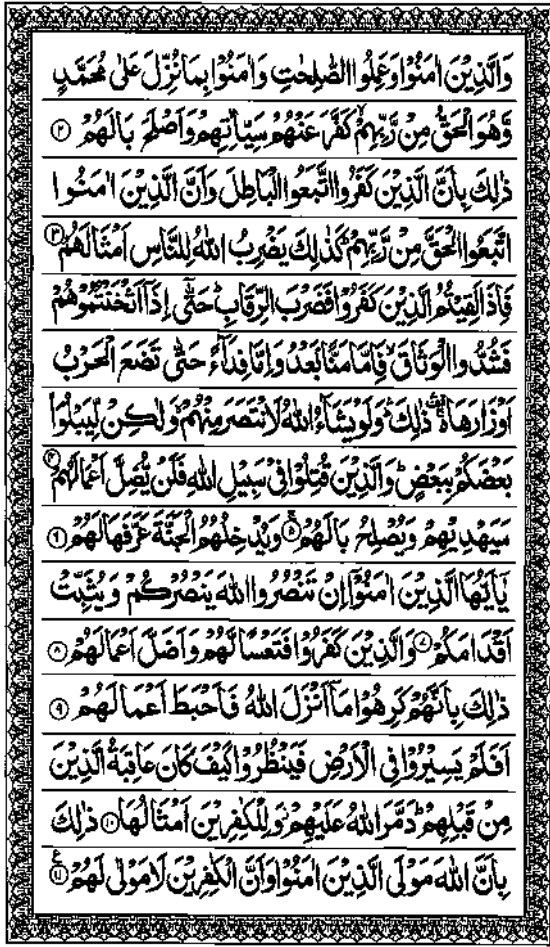 وَالَّذِيْنَ اٰمَنُوْا وَعَمِلُوا الصّٰلِحٰتِ وَاٰمَنُوْا بِمَا نُزِّلَ عَلٰى مُحَمَّدٍ
وَّهُوَ الْحَقُّ مِنْ رَّبِّهِمْ ۙ كَفَّرَ عَنْهُمْ سَيِّاٰتِهِمْ وَاَصْلَحَ بَالَهُمْ ۝۲
ذٰلِكَ بِاَنَّ الَّذِيْنَ كَفَرُوا اتَّبَعُوا الْبَاطِلَ وَاَنَّ الَّذِيْنَ اٰمَنُوا
اتَّبَعُوا الْحَقَّ مِنْ رَّبِّهِمْ ؕ كَذٰلِكَ يَضْرِبُ اللّٰهُ لِلنَّاسِ اَمْثَالَهُمْ ۝۳
فَاِذَا لَقِيْتُمُ الَّذِيْنَ كَفَرُوْا فَضَرْبَ الرِّقَابِ ؕ حَتّٰۤى اِذَاۤ اَثْخَنْتُمُوْهُمْ
فَشُدُّوا الْوَثَاقَ ۙ فَاِمَّا مَنًّۢا بَعْدُ وَاِمَّا فِدَآءً حَتّٰى تَضَعَ الْحَرْبُ
اَوْزَارَهَا ۛ ذٰلِكَ ۛ وَلَوْ يَشَآءُ اللّٰهُ لَانْتَصَرَ مِنْهُمْ وَلٰكِنْ لِّيَبْلُوَا۟
بَعْضَكُمْ بِبَعْضٍ ؕ وَالَّذِيْنَ قُتِلُوْا فِيْ سَبِيْلِ اللّٰهِ فَلَنْ يُّضِلَّ اَعْمَالَهُمْ ۝۴
سَيَهْدِيْهِمْ وَيُصْلِحُ بَالَهُمْ ۝۵ وَيُدْخِلُهُمُ الْجَنَّةَ عَرَّفَهَا لَهُمْ ۝۶
يٰۤاَيُّهَا الَّذِيْنَ اٰمَنُوْۤا اِنْ تَنْصُرُوا اللّٰهَ يَنْصُرْكُمْ وَيُثَبِّتْ
اَقْدَامَكُمْ ۝۷ وَالَّذِيْنَ كَفَرُوْا فَتَعْسًا لَّهُمْ وَاَضَلَّ اَعْمَالَهُمْ ۝۸
ذٰلِكَ بِاَنَّهُمْ كَرِهُوْا مَاۤ اَنْزَلَ اللّٰهُ فَاَحْبَطَ اَعْمَالَهُمْ ۝۹
اَفَلَمْ يَسِيْرُوْا فِي الْاَرْضِ فَيَنْظُرُوْا كَيْفَ كَانَ عَاقِبَةُ الَّذِيْنَ
مِنْ قَبْلِهِمْ ؕ دَمَّرَ اللّٰهُ عَلَيْهِمْ ؗ وَلِلْكٰفِرِيْنَ اَمْثَالُهَا ۝۱۰ ذٰلِكَ
بِاَنَّ اللّٰهَ مَوْلَى الَّذِيْنَ اٰمَنُوْا وَاَنَّ الْكٰفِرِيْنَ لَا مَوْلٰى لَهُمْ ۝۱۱ ع